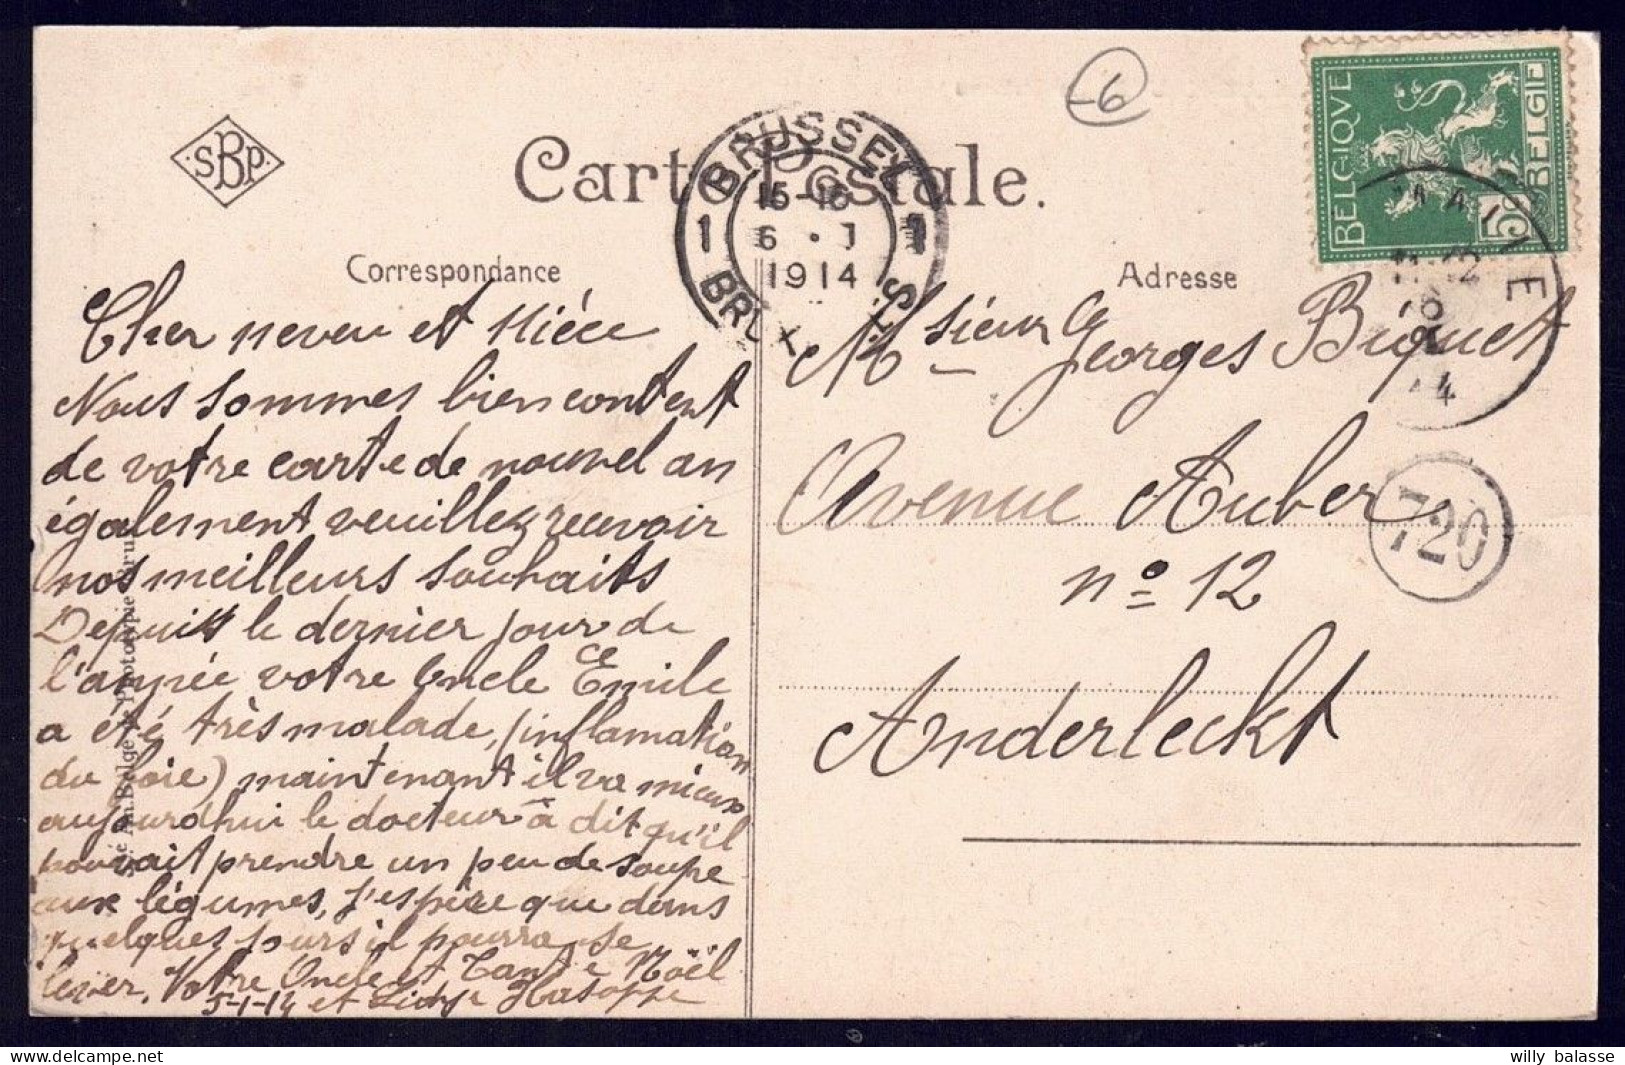 SBP
Carte Postale.
BRUSSEL
15-16
1 6 . I 1
1914
BRUX
-6
BELGIQVE
BELGIË
5
11-12
4
Correspondance
Adresse
Cher neveu et Nièce
Nous sommes bien content
de votre carte de nouvel an
également veuillez recevoir
nos meilleurs souhaits
Depuis le dernier jour de
l'année votre Oncle Emile
a été très malade, (inflamation
du foie) maintenant il va mieux
aujourdhui le docteur à dit qu'il
pouvait prendre un peu de soupe
aux légumes, J'espére que dans
quelques jours il pourra se
lever. Votre Oncle et Tante Noël
5-1-14 et
Msieur Georges Biquet
Avenue Auber
720
nº 12
Anderleckt
Sté An. Belge de Phototypie
willy balasse